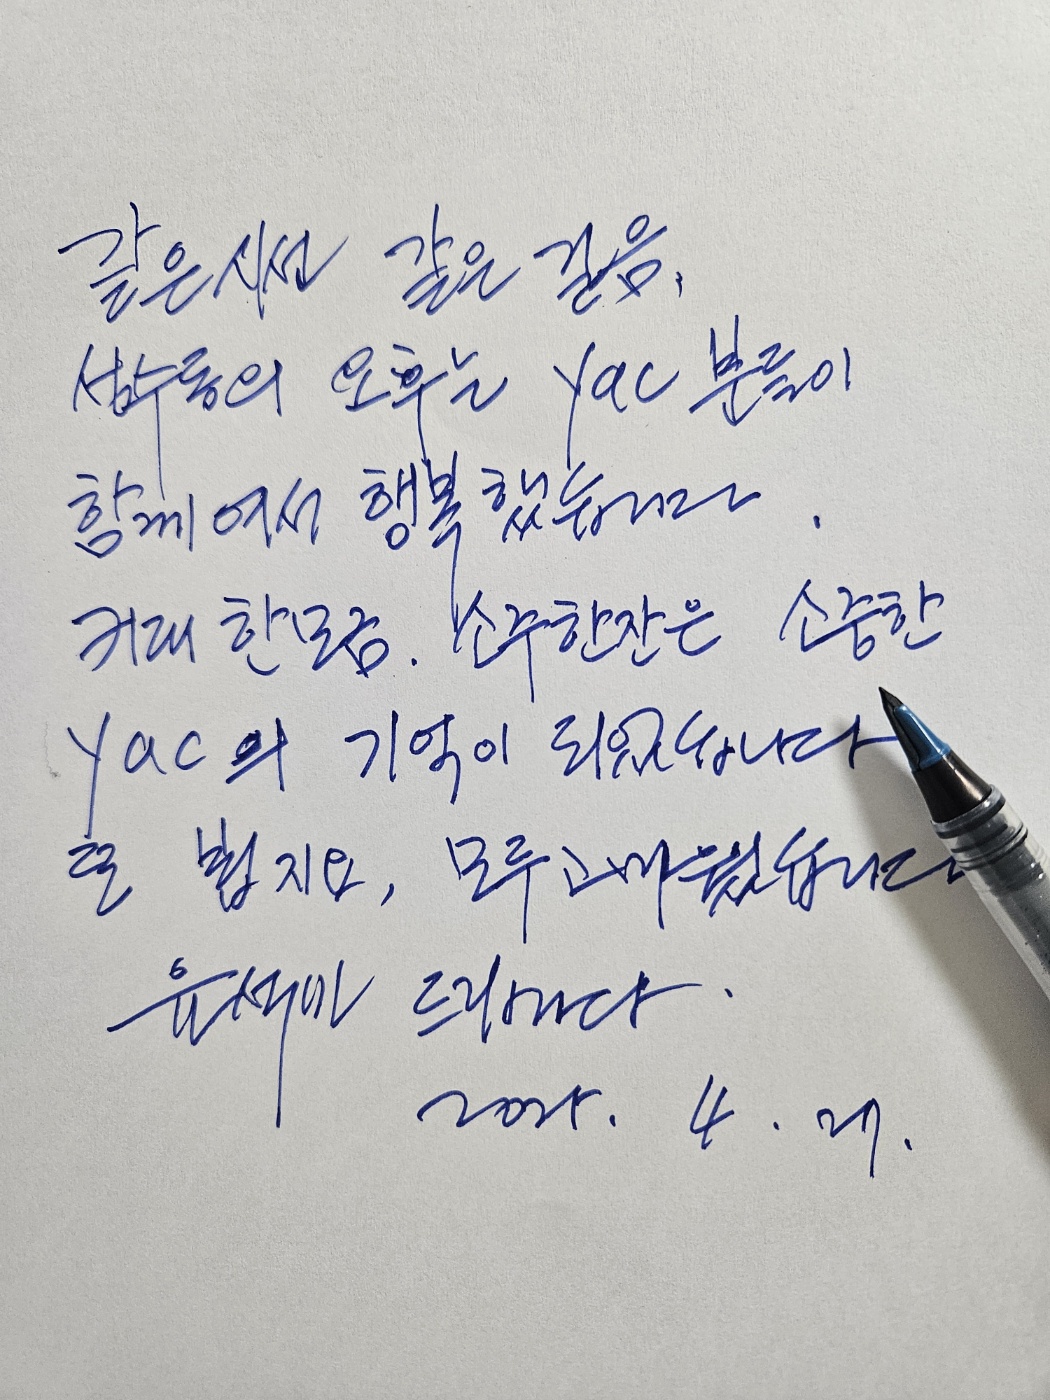 같은 시선 같은 걸음,
성수동의 오후는 yac 분들이
함께여서 행복했습니다.
커피 한모금. 소주한잔은 소중한
yac의 기억이 되었습니다
또 뵙지요, 모두 고마웠습니다
유석미 드립니다.
4. 27.